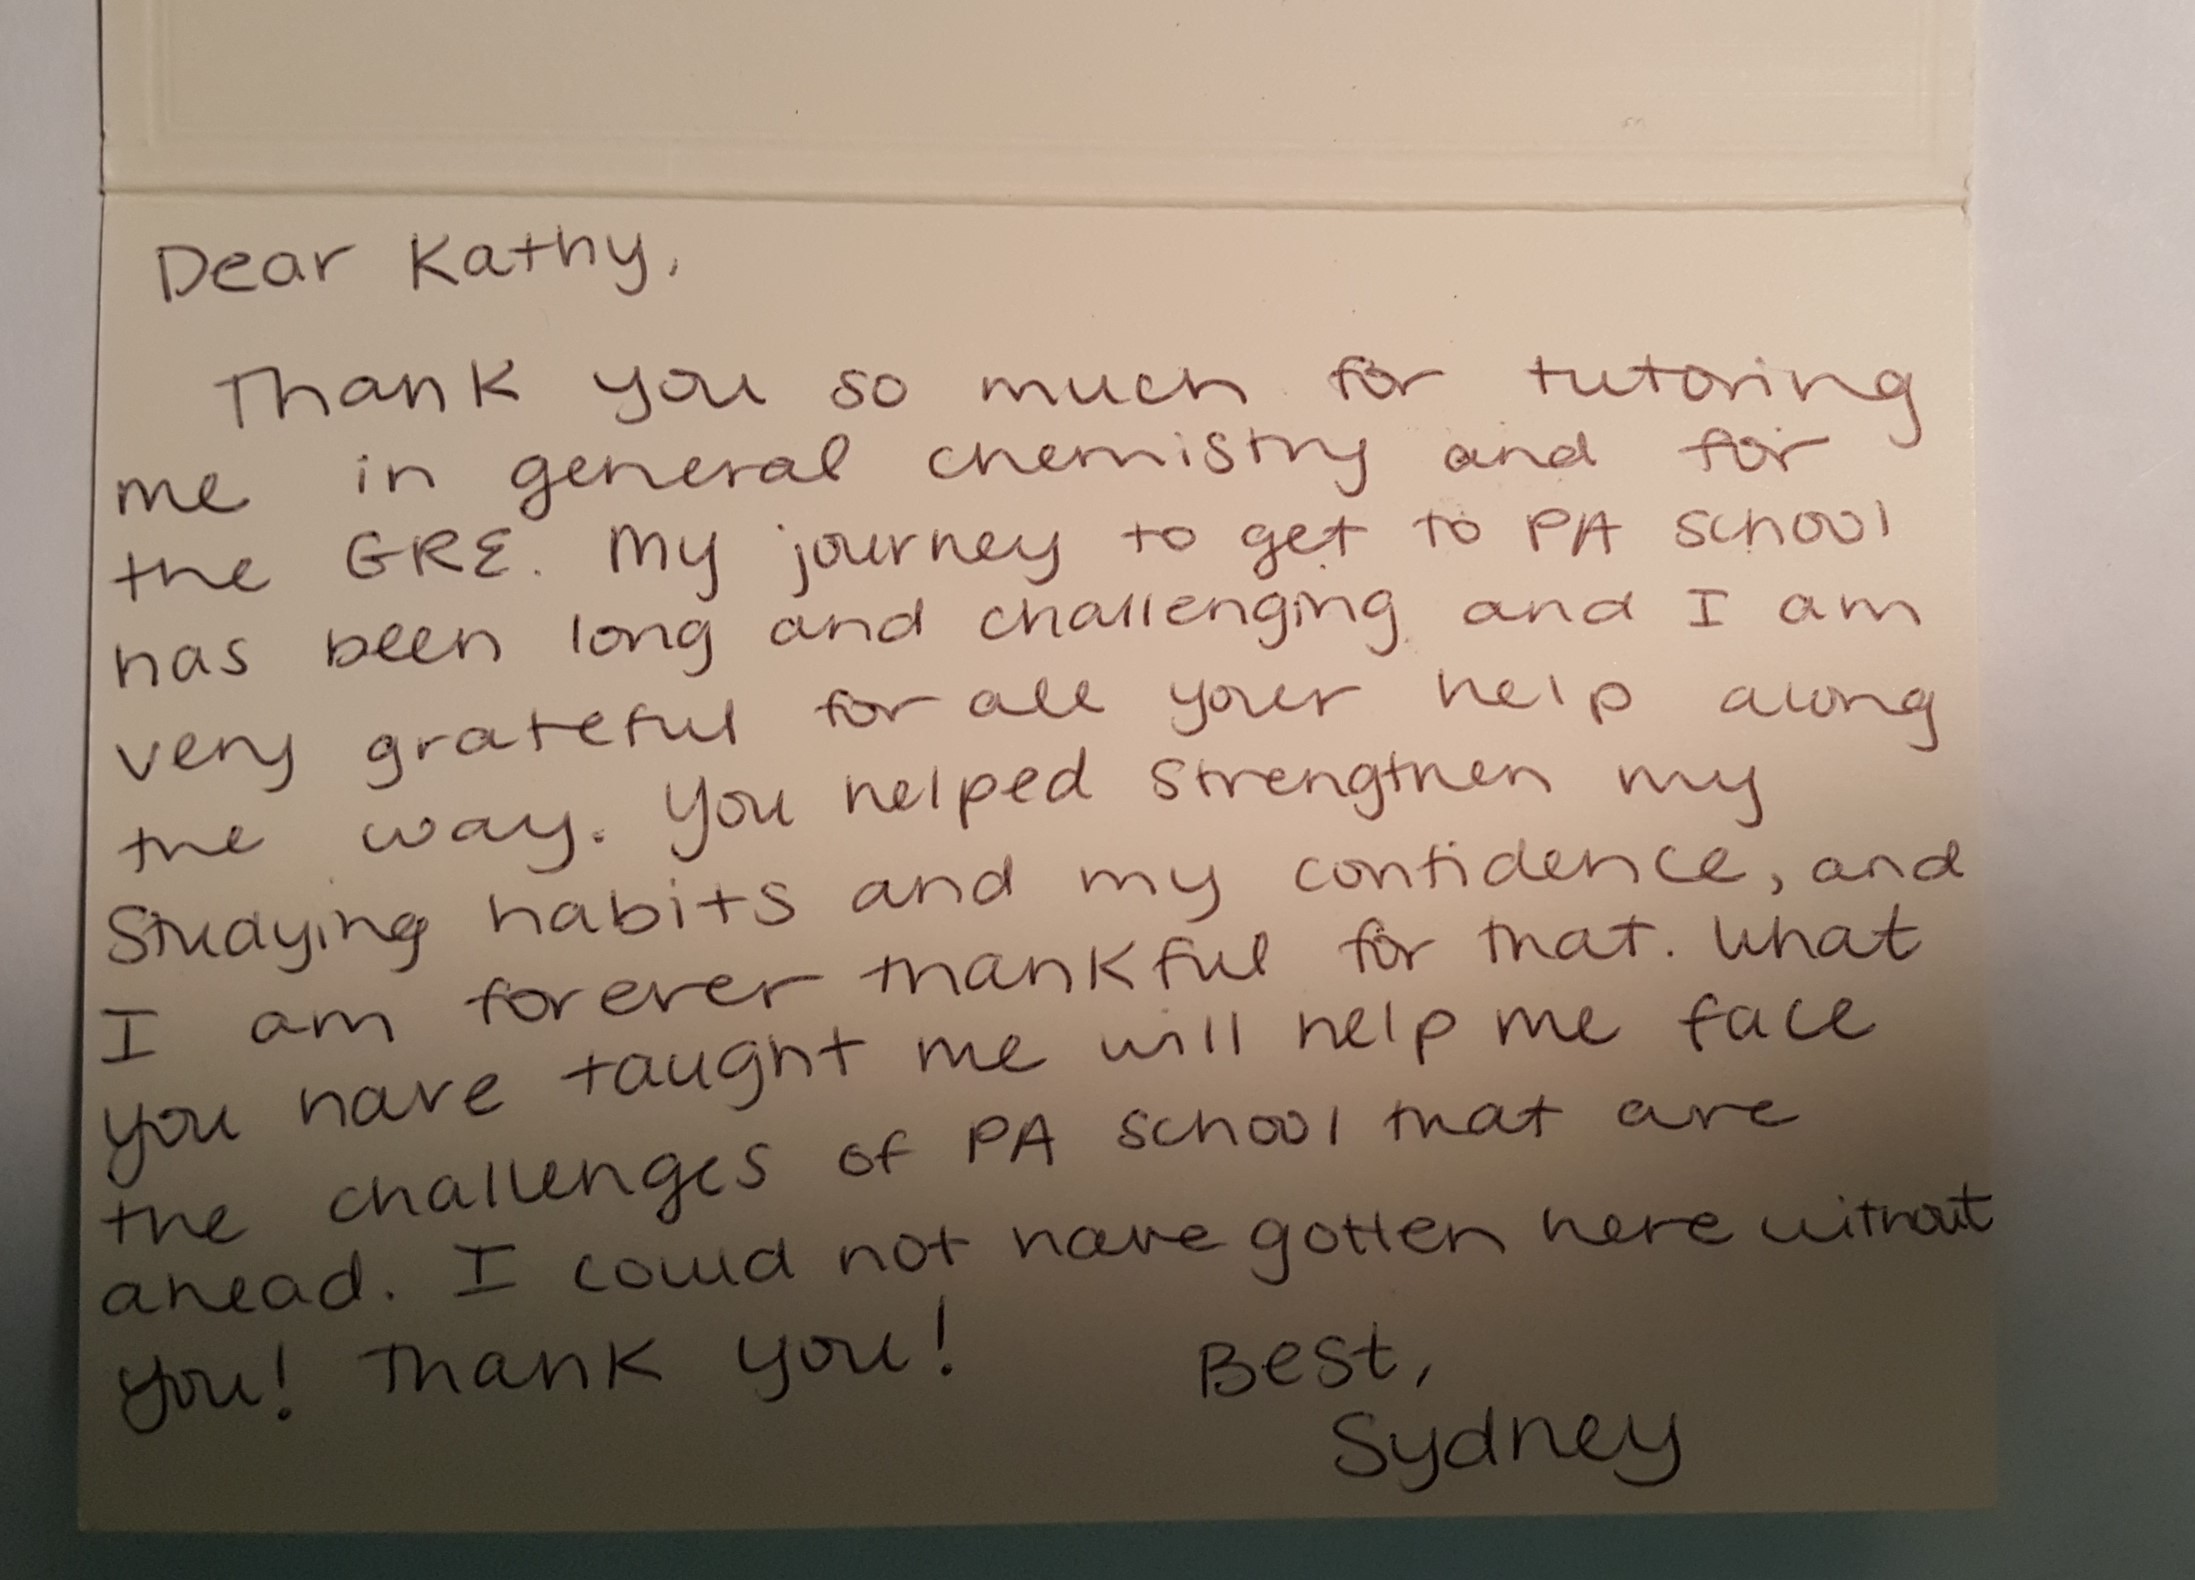 Dear Kathy,
Thank you so much for tutoring
me in general chemistry and for
the GRE. My journey to get to PA school
has been long and challenging and I am
very grateful for all your help along
the way. You helped strengthen my
studying habits and my confidence, and
I am forever thankful for that. What
you have taught me will help me face
the challenges of PA school that are
ahead. I could not have gotten here without
you! Thank you!
Best,
Sydney